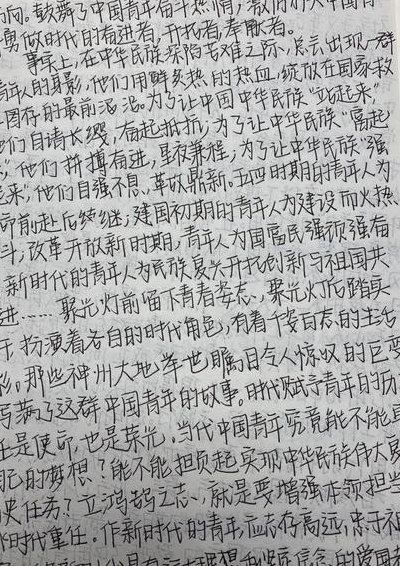 向。鼓舞了中国青年奋斗热情,教
勇做时代的奋进者,开拓者,奉献者。
事实上,在中华民族深陷苦难之际,总会出现一群
青年人的身影,他们用鲜炙热的热血,绽放在国家救
亡图存的最前沿。为了让中国中华民族“站起来”
他们自请长缨,奋起抵抗;为了让中华民族“富起
来”他们拼搏奋进,星夜兼程;为了让中华民族“强
起来”他们自强不息、革故鼎新。五四时期的青年人为
前赴后继;建国初期的青年人为建设而火热
斗;改革开放新时期,青年人为国富民强顽强奋
新时代的青年人为民族复兴开拓创新与祖国共
进……聚光灯前留下青春姿态,聚光灯后踏实
干扮演着各自的时代角色,有着千姿百态的生活
彩。那些神州大地举世瞩目令人惊叹的巨变
写满了这群中国青年的故事。时代赋予青年的历
任是使命,也是荣光。当代中国青年究竟能不能
自己的梦想?能不能担负起实现中华民族伟大复
史任务?立鸿鹄之志,就是要增强本领担当
时代重任。作新时代的青年,应志存高远,忠于祖
理想和坚定信念,的爱国者